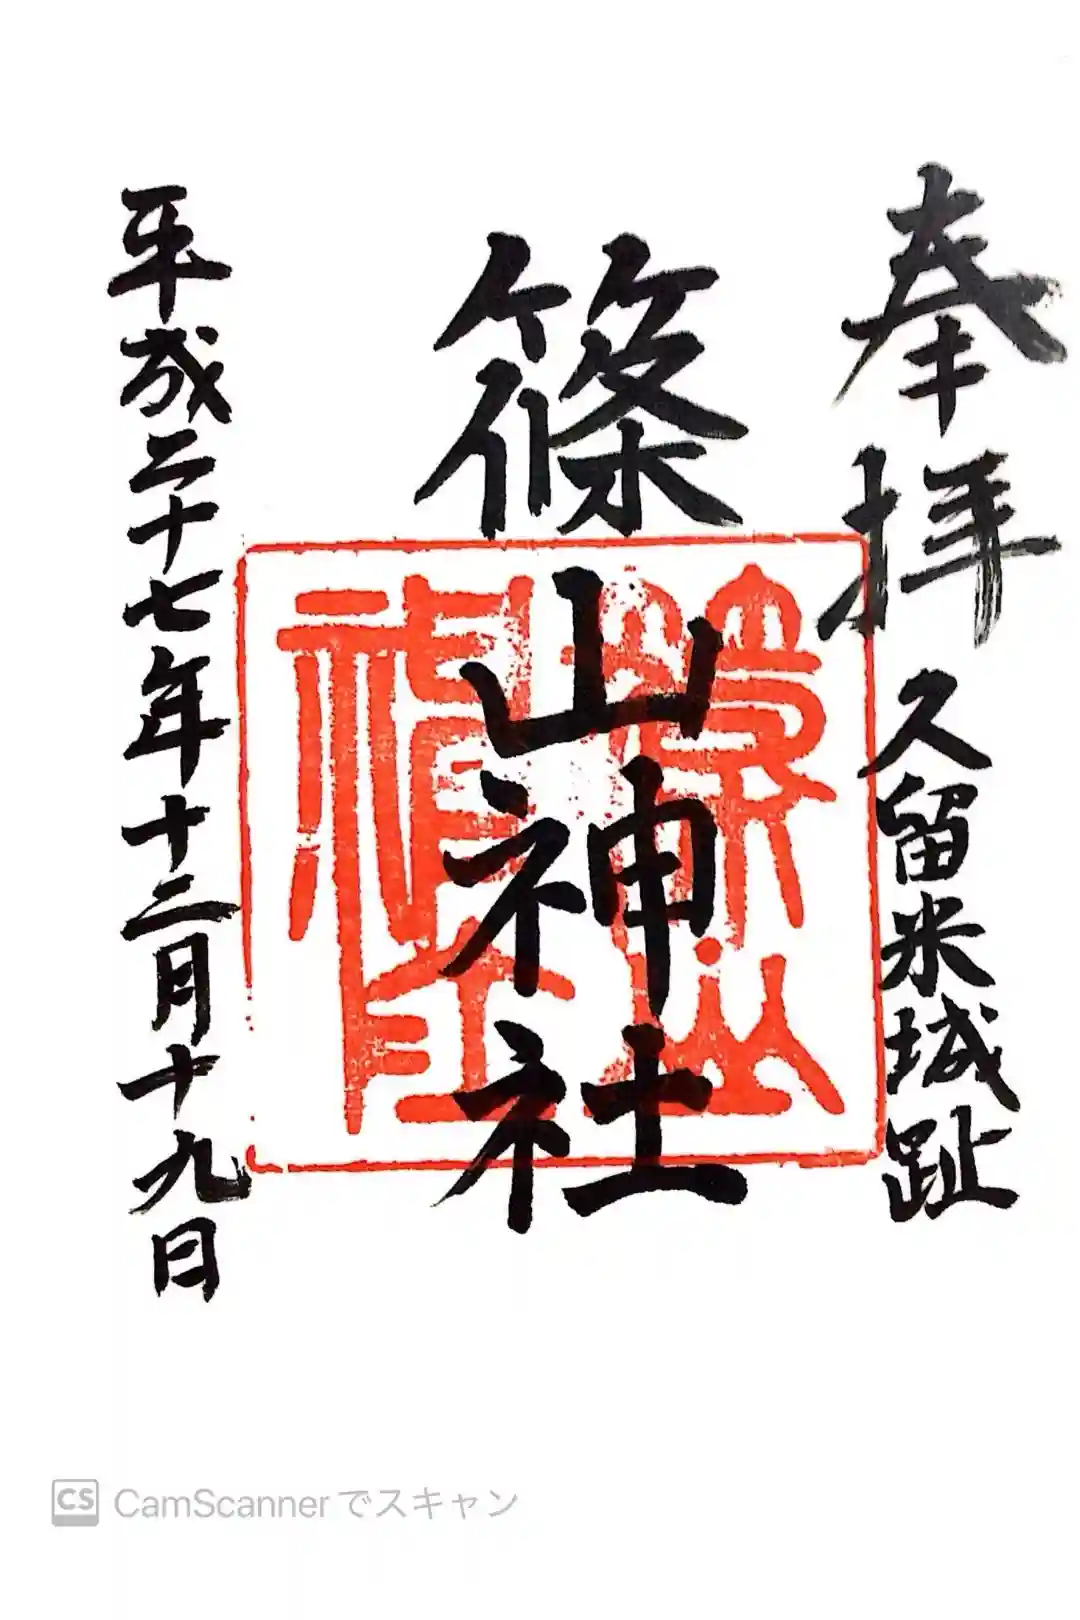 奉拝
久留米城趾
篠山神社
篠山神社
平成二十七年十二月十九日
CS CamScannerでスキャン